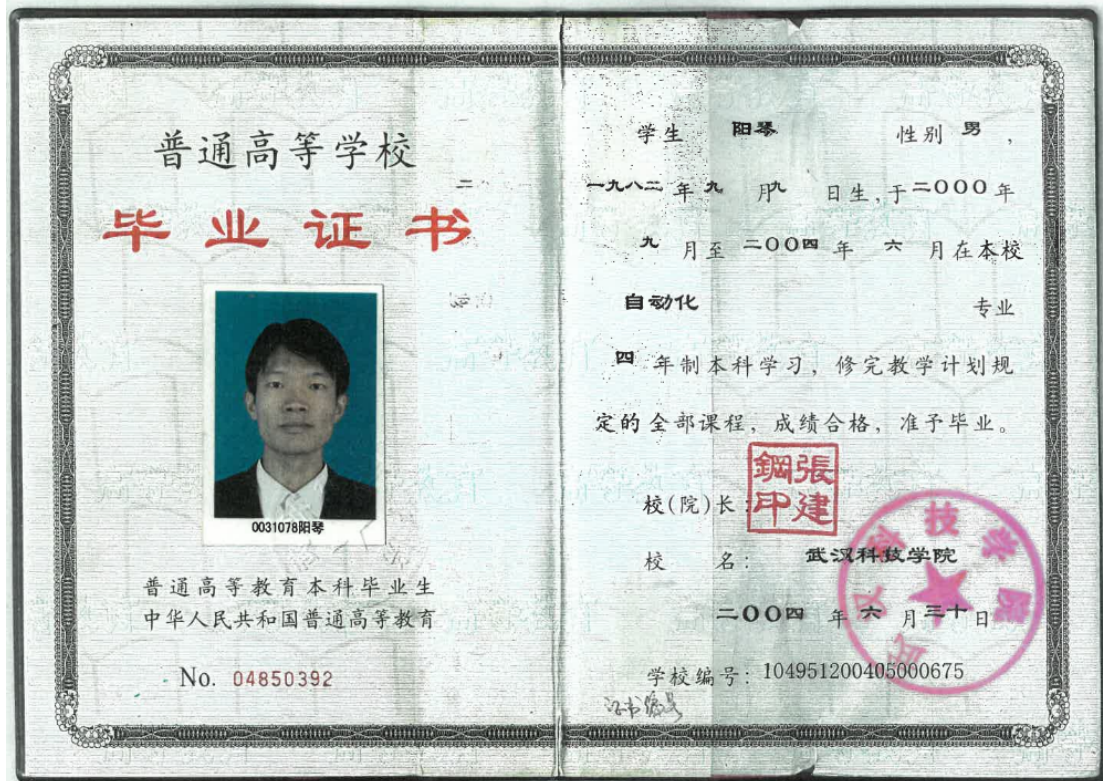 普通高等学校
毕业证书
0031078阳琴
普通高等教育本科毕业生
中华人民共和国普通高等教育
No. 04850392
学生 阳琴 性别 男,
一九八二 年 九 月 九 日生,于二000年
九 月至 二00四 年 六 月在本校
自动化 专业
四 年制本科学习,修完教学计划规
定的全部课程,成绩合格,准予毕业。
校(院)长:
張建鋼印
校 名: 武汉科技学院
武汉科技学院
二00四 年 六 月 三十 日
学校编号:104951200405000675
证书编号